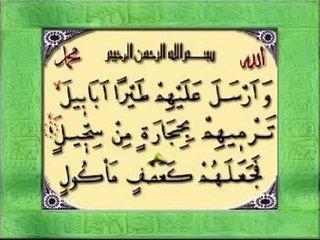 الله بسم الله الرحمن الرحيم محمد
وَأَرْسَلَ عَلَيْهِمْ طَيْرًا أَبَابِيلَ
تَرْمِيهِمْ بِحِجَارَةٍ مِنْ سِجِّيلٍ
فَجَعَلَهُمْ كَعَصْفٍ مَأْكُولٍ